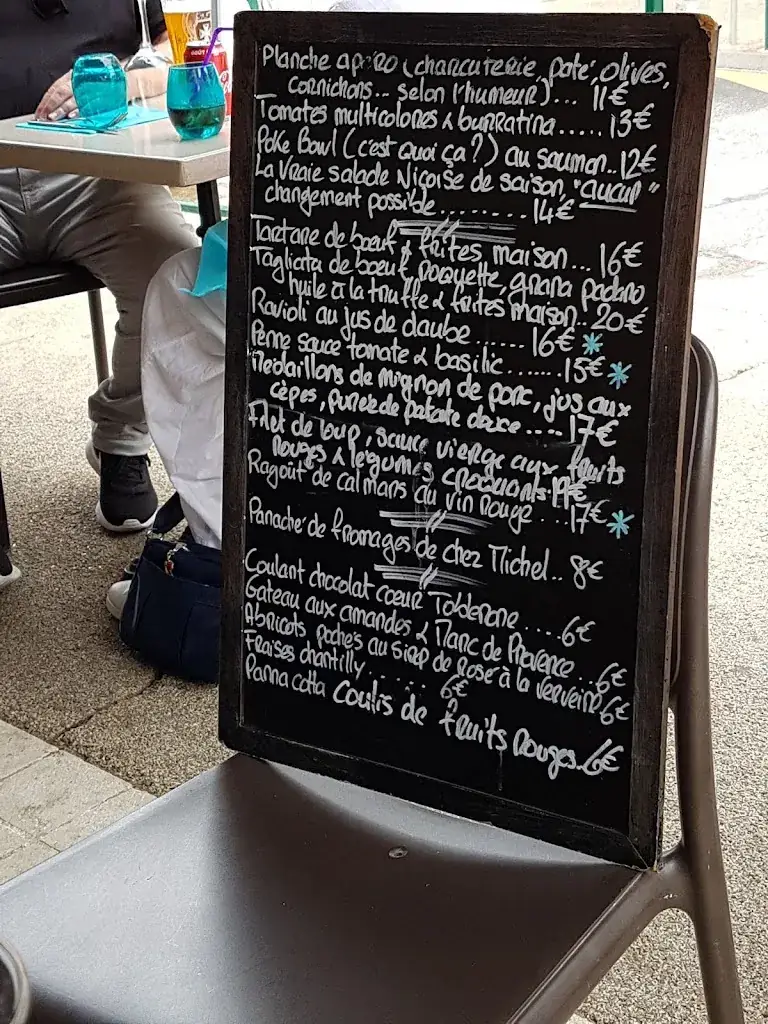 Planche apéro (charcuterie, paté, olives,
cornichons... selon l'humeur)... 11€
Tomates multicolores & burratina..... 13€
Poke Bowl (c'est quoi ça?) au saumon.. 12€
La vraie salade Niçoise de saison, "aucun"
changement possible......... 14€
Tartare de boeuf & frites maison... 16€
Tagliata de boeuf roquette, grana padano
huile à la truffe & frites maison.. 20€
Ravioli au jus de daube....... 16€ *
Penne sauce tomate & basilic....... 15€ *
Médaillons de mignon de porc, jus aux
cèpes, purée de patate douce.... 17€
Filet de loup, sauce vierge aux fruits
rouges & légumes croquants. 19€
Ragoût de calmars au vin rouge... 17€ *
Panaché de fromages de chez Michel.. 8€
Coulant chocolat coeur Toblerone.... 6€
Gateau aux amandes & Marc de Provence... 6€
Abricots pochés au sirop de rose à la verveine 6€
Fraises chantilly...... 6€
Panna cotta coulis de fruits rouges.. 6€